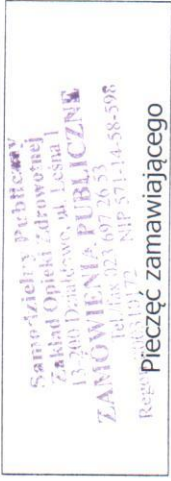 Samodzielny Publiczny
Zakład Opieki Zdrowotnej
13-200 Działdowo, ul. Leśna 1
ZAMÓWIENIA PUBLICZNE
tel./fax 023 697 26 53
NIP 571-14-58-598
Pieczęć zamawiającego